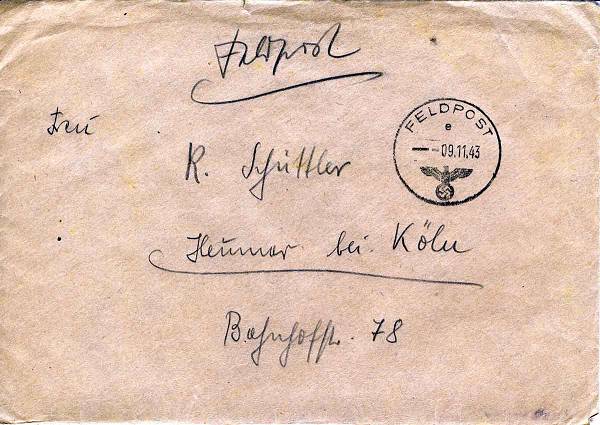 Feldpost
FELDPOST
e
- -09.11.43
Frau
K. Schüttler
Heumar bei Köln
Bahnhofstr. 78